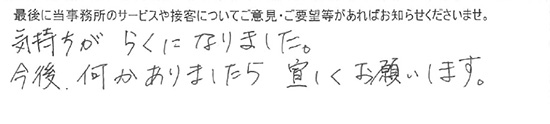 最後に当事務所のサービスや接客についてご意見・ご要望等があればお知らせくださいませ。
気持ちが らくに なりました。
今後、何かありましたら 宜しく お願いします。